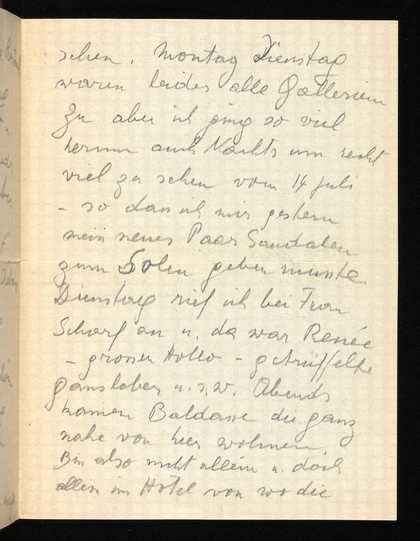 sehen. Montag Dienstag
waren leider alle Gallerien
zu aber ich ging so viel
herum auch Nachts um recht
viel zu sehen vom 14 juli
– so dass ich mir gestern
mein neues Paar Sandalen
zum Solen geben musste
Dienstag rief ich bei Frau
Scharf an u. da war Renée
– grosser Hollo – getrüffelte
gansleber u.s.w. Abends
kamen Baldass die ganz
nahe von hier wohnen.
Bin also nicht allein u. doch
allein im Hotel von wo die